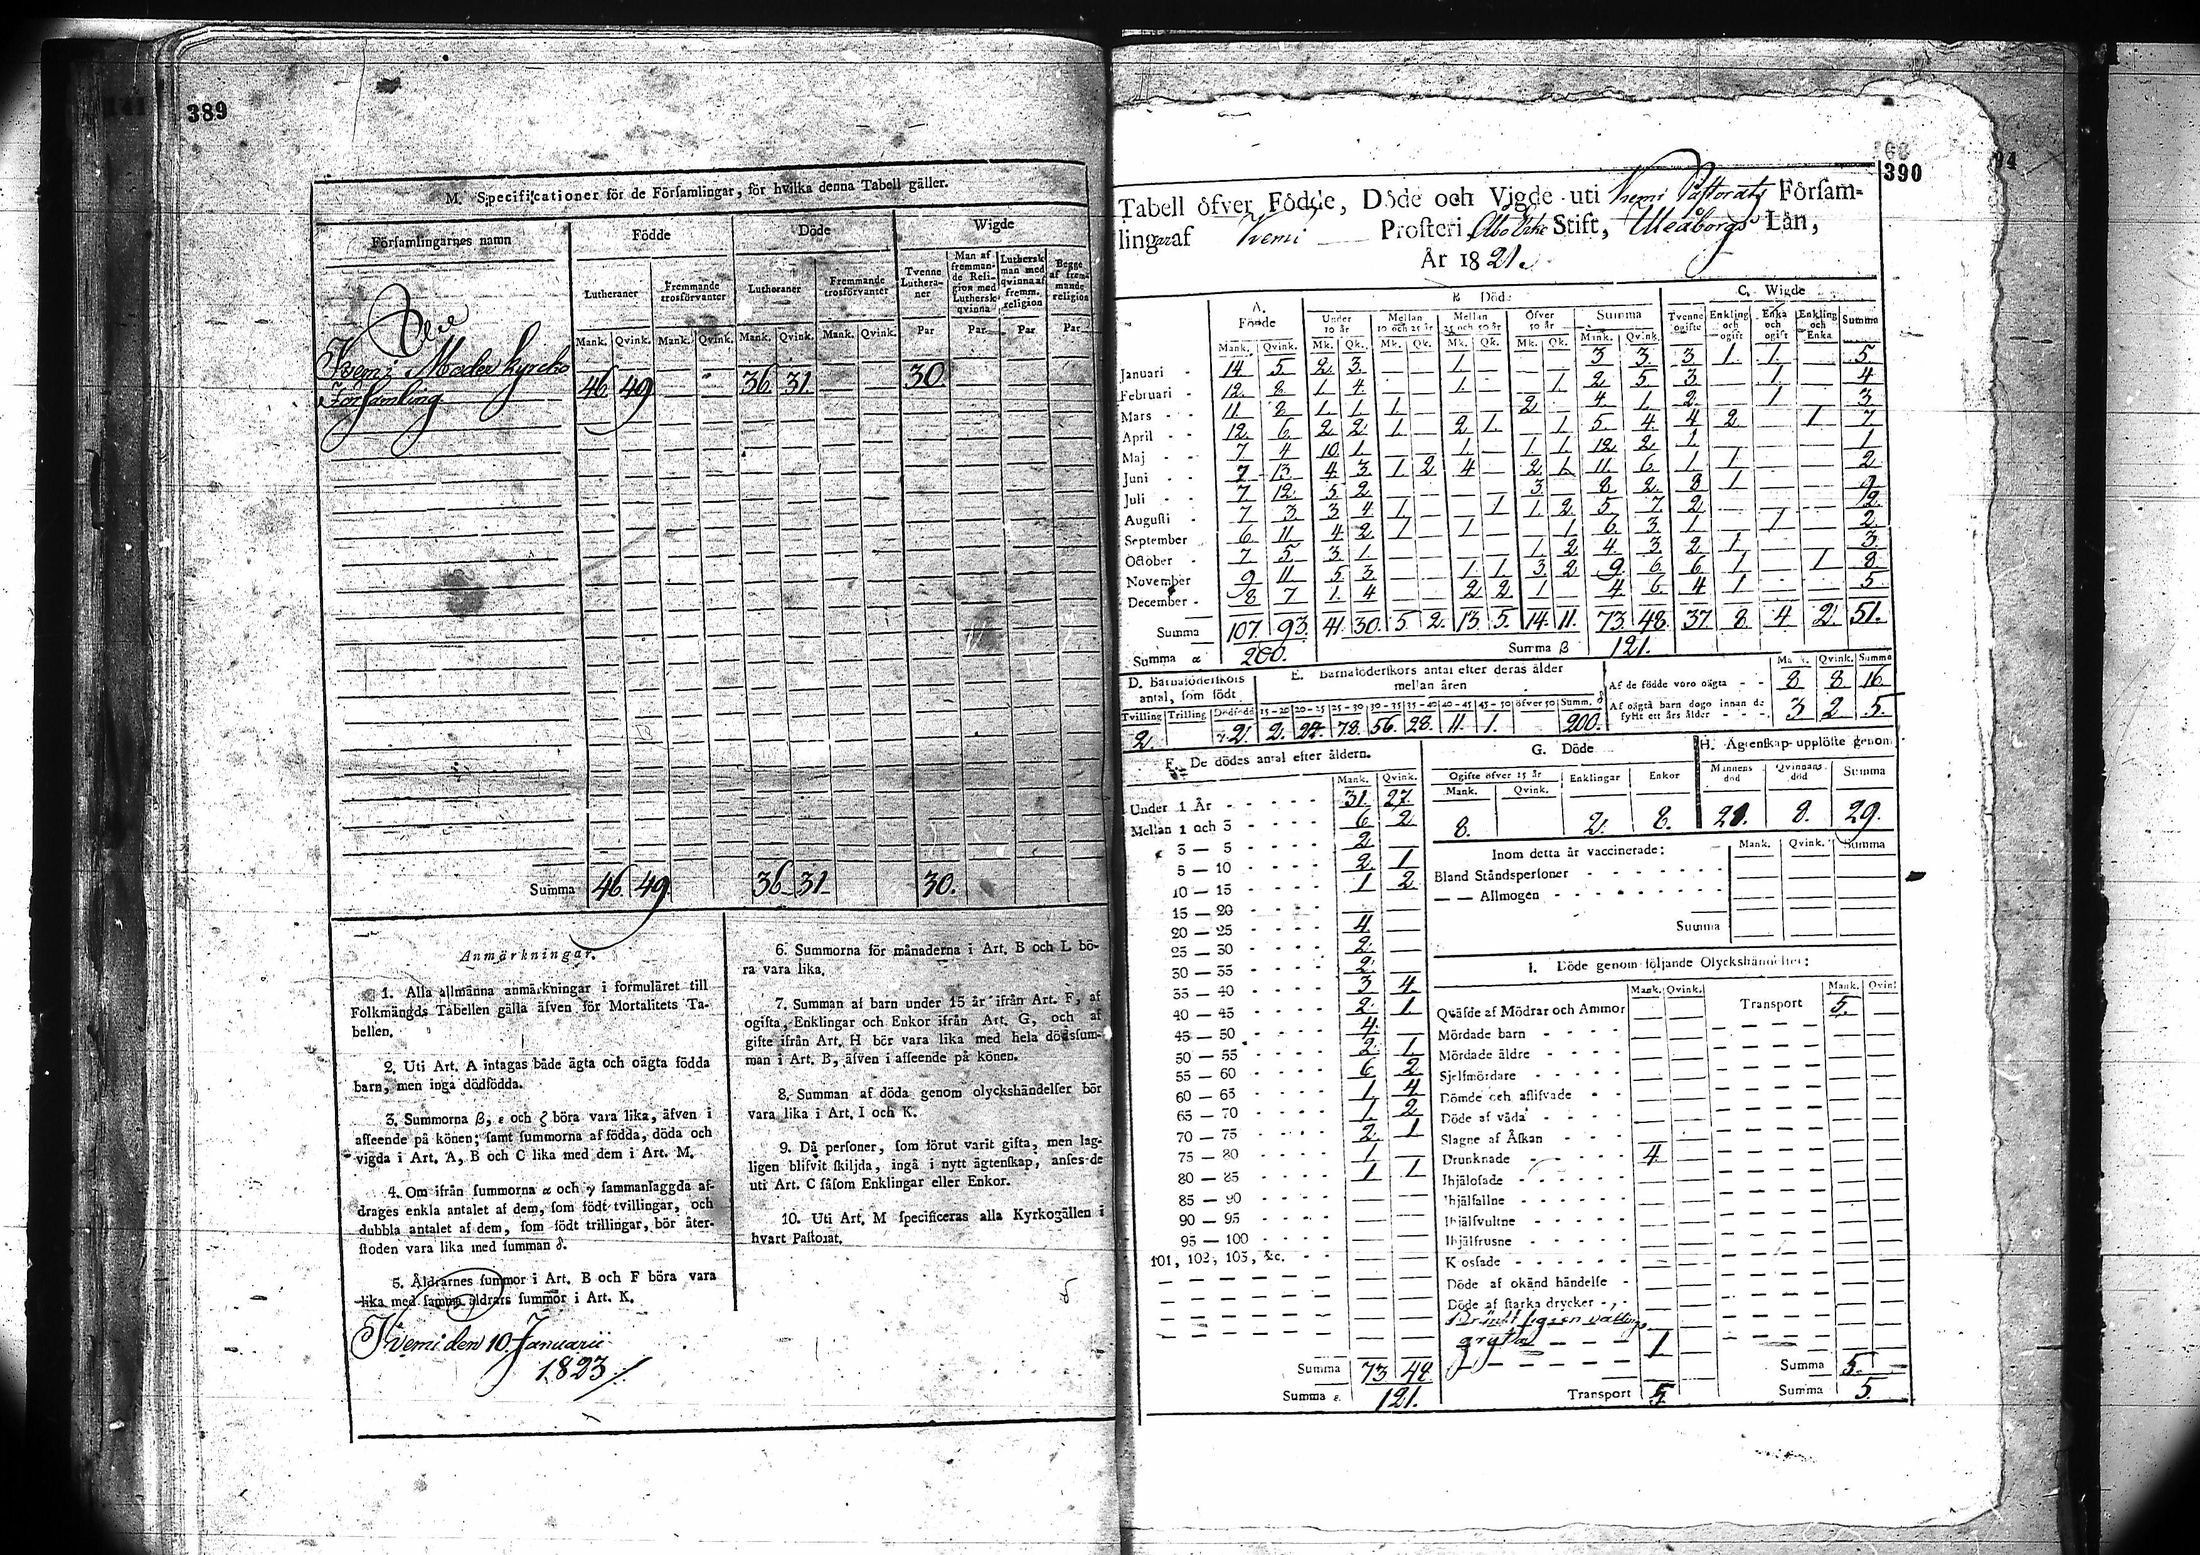 389
M. Specificationer för de Församlingar, för hvilka denna Tabell gäller.
Församlingarnes namn Födde Döde Wigde
Lutheraner Fremmande trosförvanter Lutheraner Fremmande trosförvanter Tvenne Lutheraner Man af fremmande Religion med Luthersk qvinna Luthersk man med qvinna af fremm. religion Begge af fremmande religion
Mank. Qvink. Mank. Qvink. Mank. Qvink. Mank. Qvink. Par Par Par Par
Kemi Moder Kyrcko
Församling 46. 49 36. 31. 30.
Summa 46. 49. 36. 31. 30.
Anmärkningar.
1. Alla allmänna anmärkningar i formuläret till
Folkmängds Tabellen gälla äfven för Mortalitets Ta-
bellen.
2. Uti Art. A intagas både ägta och oägta födda
barn, men inga dödfödda.
3. Summorna β, ε och ζ böra vara lika, äfven i
afseende på könen; samt summorna af födda, döda och
vigda i Art. A, B och C lika med dem i Art. M.
4. Om ifrån summorna α och γ sammanlaggda af-
drages enkla antalet af dem, som födt tvillingar, och
dubbla antalet af dem, som födt trillingar, bör åter-
stoden vara lika med summan δ.
5. Åldrarnes summor i Art. B och F böra vara
lika med samma åldrars summor i Art. K.
6. Summorna för månaderna i Art. B och L bö-
ra vara lika.
7. Summan af barn under 15 år ifrån Art. F, af
ogifta, Enklingar och Enkor ifrån Art. G, och af
gifte ifrån Art. H bör vara lika med hela dödssum-
man i Art. B, äfven i afseende på könen.
8. Summan af döda genom olyckshändelser bör
vara lika i Art. I och K.
9. Då personer, som förut varit gifta, men lag-
ligen blifvit skiljda, ingå i nytt ägtenskap, anses de
uti Art. C såsom Enklingar eller Enkor.
10. Uti Art. M specificeras alla Kyrkogällen i
hvart Pastorat.
Kemi den 10. Januarii
1823
390
94
Tabell öfver Födde, Döde och Vigde uti Kemi Pastorats Försam-
lingar af Kemi Prosteri Åbo Erke Stift, Uleåborgs Län,
År 1821.
A. Födde B. Döde C. Wigde
Under 10 år Mellan 10 och 25 år Mellan 25 och 50 år Öfver 50 år Summa Tvenne ogifte Enkling och ogift Enka och ogift Enkling och Enka Summa
Mank. Qvink. Mk. Qk. Mk. Qk. Mk. Qk. Mk. Qk. Mank. Qvink.
Januari 14 5 2 3 — — 1 3 3 3 1 1 — 5
Februari 12 8 1 4 — — 1 — 1 2 5 3 — 1 — 4
Mars 11 8 1 1 1 — — — 2 — 4 1 2 — 1 — 3
April 12 6 2 2 1 — 2 1 — 1 5 4 4 2 — 1 7
Maj 7 4 10 1 — — 1 — 1 1 12 2 1 — — — 1
Juni 7 13 4 3 1 2 4 — 2 1 11 6 1 1 — — 2
Juli 7 12 5 2 — — — — 3 — 8 2 8 1 — — 9
Augusti 7 3 3 4 1 — — 1 1 2 5 7 2 — — — 2
September 6 11 4 2 1 — 1 — — 1 6 3 1 — 1 — 2
October 7 5 3 1 — — — — 1 2 4 3 2 1 — — 3
November 9 11 5 3 — — 1 1 3 2 9 6 6 1 — 1 8
December 8 7 1 4 — — 2 2 1 — 4 6 4 1 — — 5
Summa 107. 93. 41. 30. 5 2. 13. 5. 14. 11. 73. 48. 37 8. 4 2. 51.
Summa α 200. Summa β 121.
D. Barnaföderskors antal, som födt
Tvilling Trilling Dödfödt
2. 2.
E. Barnaföderskors antal efter deras ålder
mellan åren
15—20 20—25 25—30 30—35 35—40 40—45 45—50 öfver 50 Summ. δ
2. 24. 78. 56. 28. 11. 1. 200.
Mank. Qvink. Summa
Af de födde voro oägta 8 8 16
Af oägta barn dogo innan de fyllt ett års ålder 3 2 5.
F. De dödes antal efter åldern.
Mank. Qvink.
Under 1 År 31. 27.
Mellan 1 och 3 6 2
3 — 5 2 —
5 — 10 2 1
10 — 15 1 2
15 — 20 — —
20 — 25 4 —
25 — 30 2 —
30 — 35 2 —
35 — 40 3 4
40 — 45 2 1
45 — 50 4 —
50 — 55 2 1
55 — 60 6 2
60 — 65 1 4
65 — 70 1 2
70 — 75 2 1
75 — 80 1 —
80 — 85 1 1
85 — 90 — —
90 — 95 — —
95 — 100 — —
101, 102, 103, &c. — —
Summa 73 48
Summa ε. 121.
G. Döde
Ogifte öfver 15 år Enklingar Enkor
Mank. Qvink.
8. 2. 8.
H. Ägtenskap upplöste genom
Mannens död Qvinnans död Summa
21. 8. 29.
Inom detta år vaccinerade: Mank. Qvink. Summa
Bland Ståndspersoner
— — Allmogen
Summa
I. Döde genom följande Olyckshändelser:
Mank. Qvink. Mank. Qvink.
Qväfde af Mödrar och Ammor Transport 5.
Mördade barn
Mördade äldre
Sjelfmördare
Dömde och aflifvade
Döde af våda
Slagne af Åskan
Drunknade 4
Ihjälosade
Ihjälfallne
Ihjälsvultne
Ihjälfrusne
Kosfade
Döde af okänd händelse
Döde af starka drycker
Bränt sig i en vällings
gryta 1
Summa 5.
Transport 5. Summa 5.